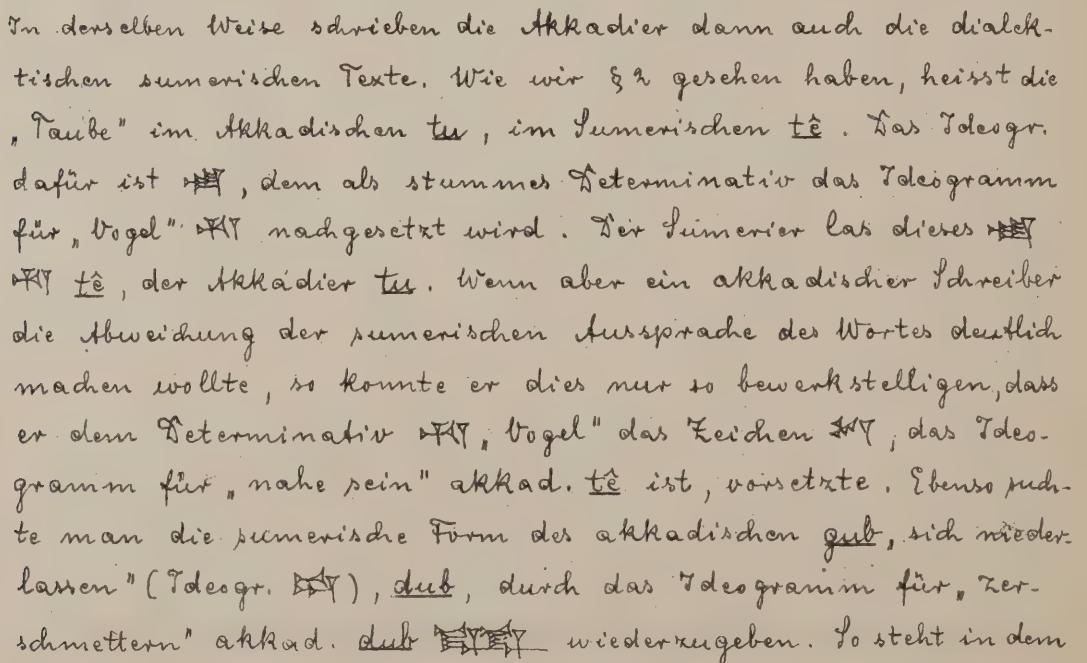 In derselben Weise schrieben die Akkadier dann auch die dialek-
tischen sumerischen Texte. Wie wir § 2 gesehen haben, heisst die
„Taube" im Akkadischen tu, im Sumerischen tê. Das Ideogr.
dafür ist , dem als stummes Determinativ das Ideogramm
für „Vogel" nachgesetzt wird. Der Sumerier las dieses
tê, der Akkadier tu. Wenn aber ein akkadischer Schreiber
die Abweichung der sumerischen Aussprache des Wortes deutlich
machen wollte, so konnte er dies nur so bewerkstelligen, dass
er dem Determinativ „Vogel" das Zeichen , das Ideo-
gramm für „nahe sein" akkad. tê ist, vorsetzte. Ebenso such-
te man die sumerische Form des akkadischen gub, sich nieder-
lassen" (Ideogr. ), dub, durch das Ideogramm für „zer-
schmettern" akkad. dub wiederzugeben. So steht in dem